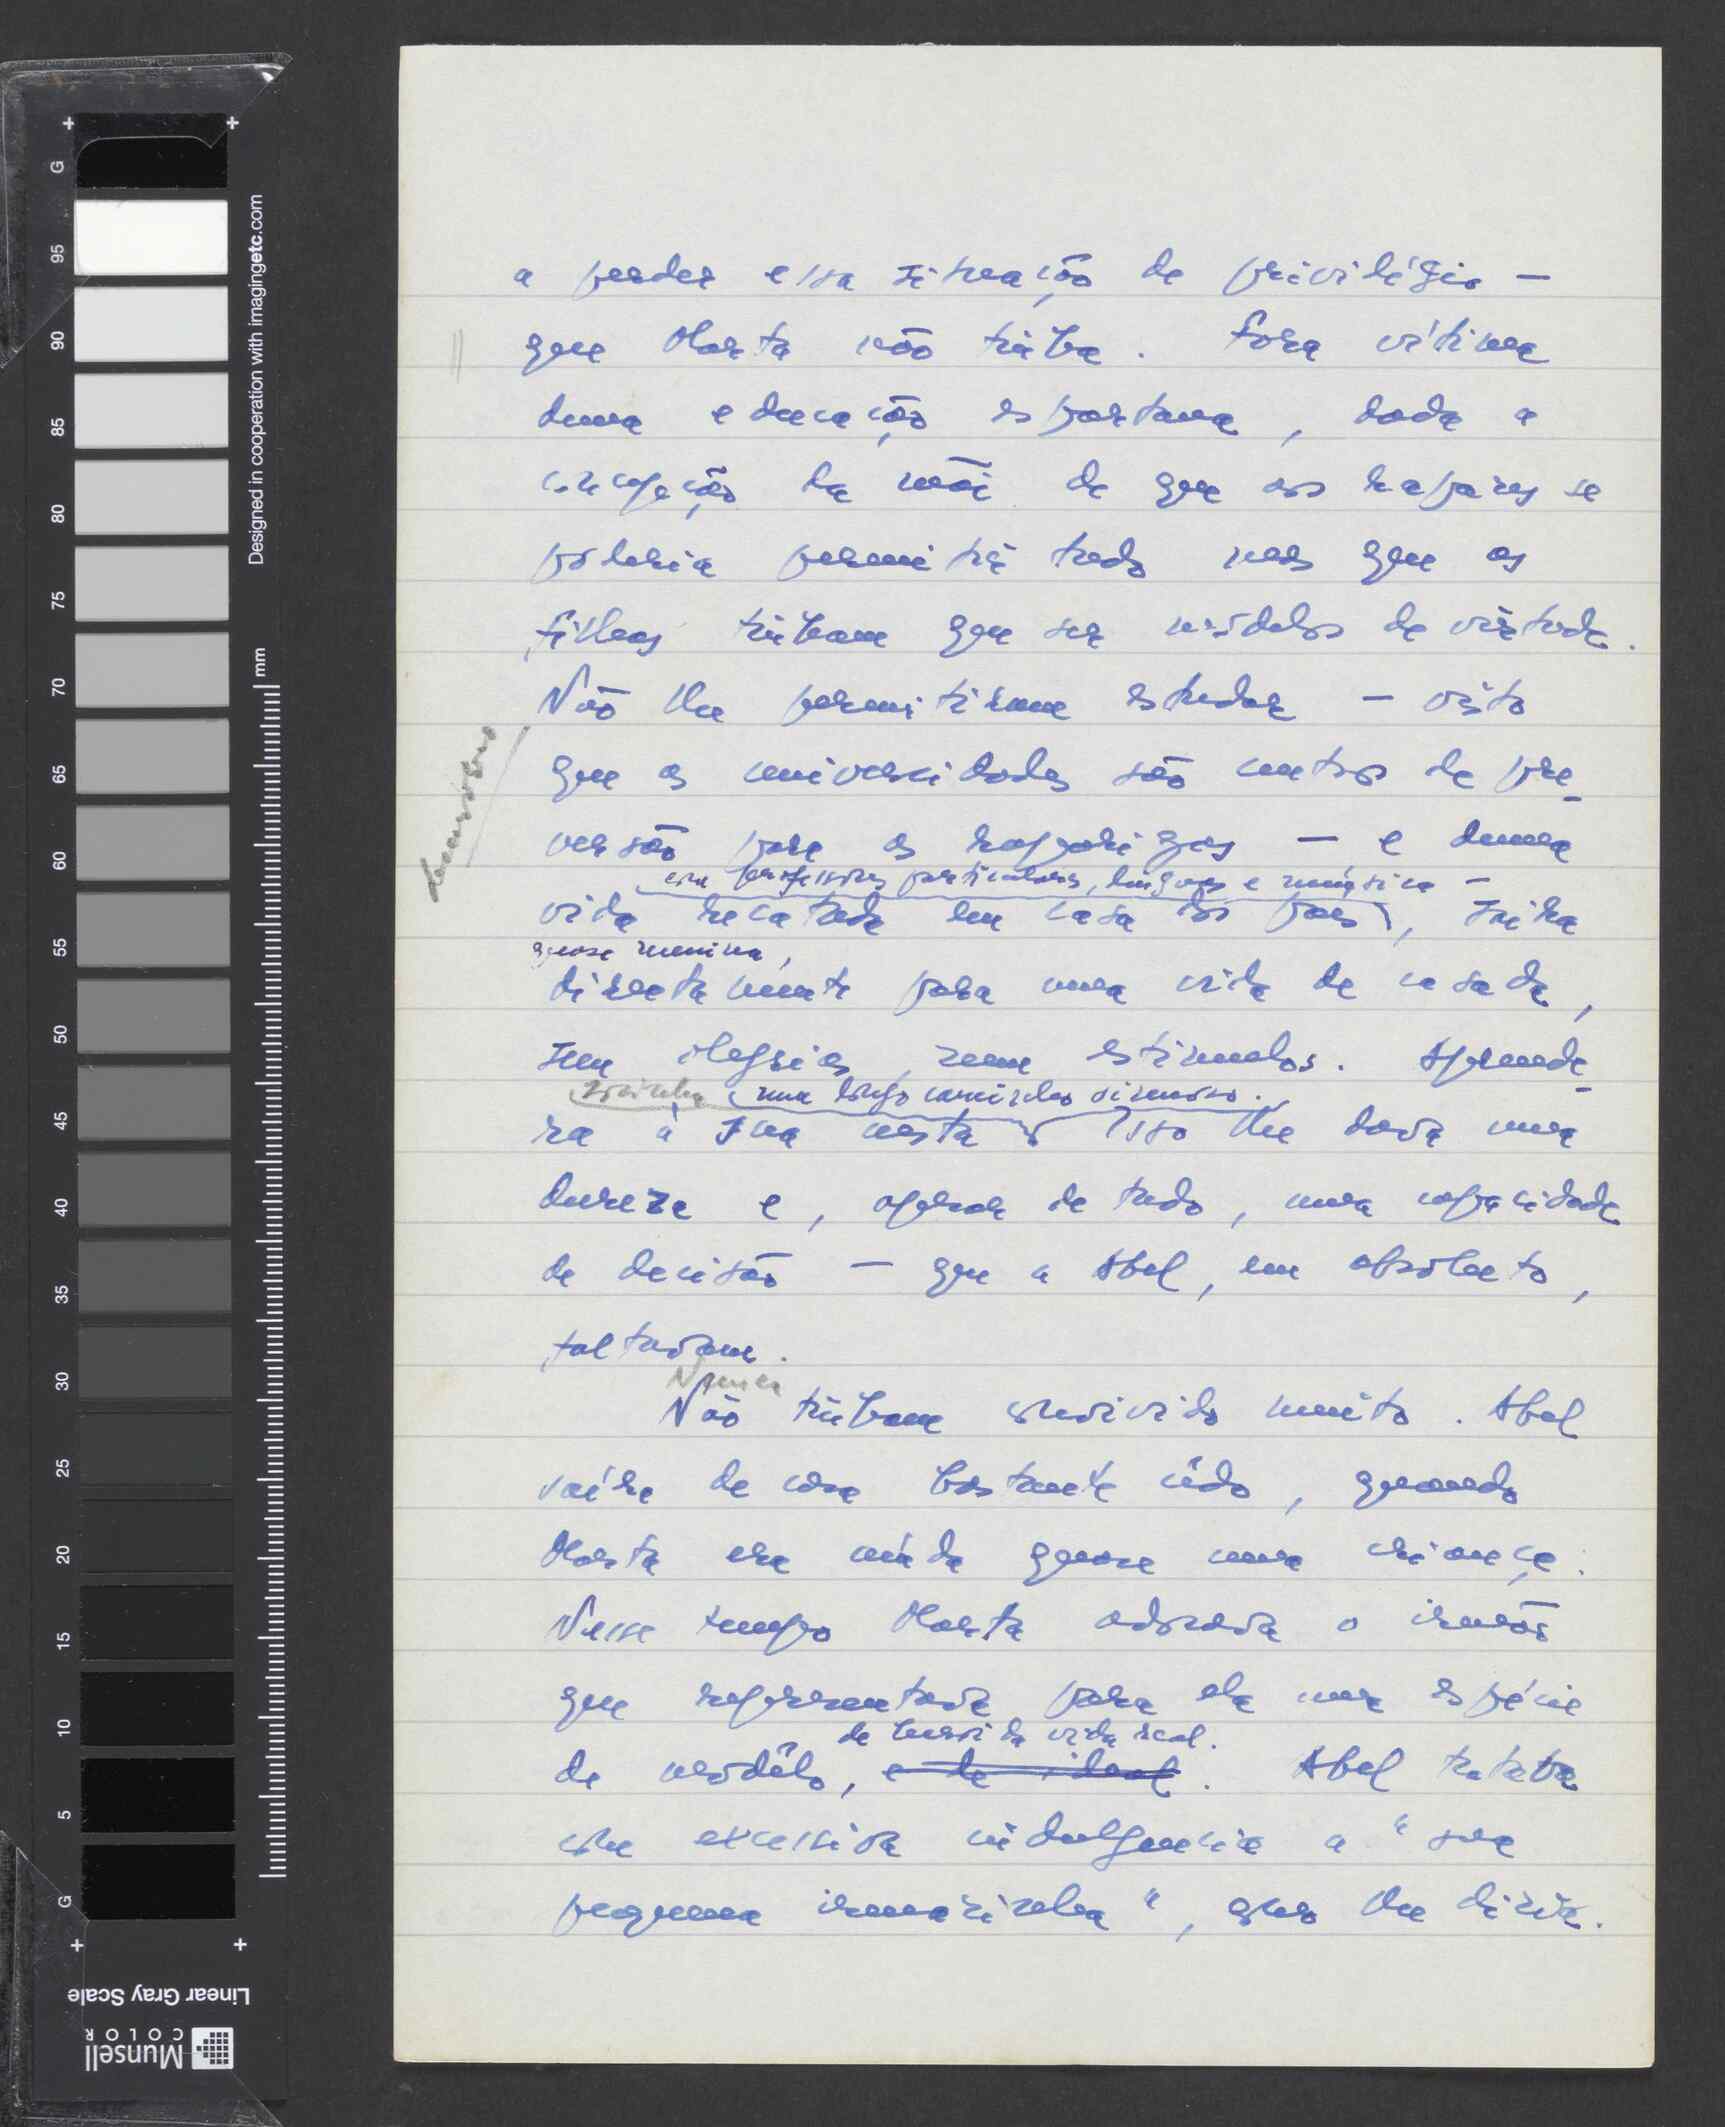 a perder essa situação de privilégio —
que Marta não tinha. Fora vítima
duma educação espartana, dada a
concepção da mãi de que aos rapazes se
poderia permitir tudo mas que as
filhas tinham que ser modelos de virtude.
Não lhe permitiram estudar — visto
que as universidades são centros de per-
versão para as raparigas — e duma
com professores particulares, línguas e música —
vida recatada em casa dos pais, saíra
quase menina,
directamente para uma vida de casada,
sem alegrias, sem estímulos. Aprende-
sozinha num longo caminho sinuoso.
ra à sua custa. Isso lhe dava uma
dureza e, apesar de tudo, uma capacidade
de decisão — que a Abel, em absoluto,
faltavam.
Nunca
Não tinham convivido muito. Abel
saíra de casa bastante cêdo, quando
Marta era ainda quase uma criança.
Nesse tempo Marta adorava o irmão
que representava para ela uma espécie
de herói da vida real.
de modêlo, e de ideal. Abel tratava
com excessiva indulgencia a "sua
pequena irmãzinha", como lhe dizia.
G
95
90
85
80
75
70
65
60
55
50
45
40
35
30
25
20
15
10
5
G
mm
Designed in cooperation with imagingetc.com
Linear Gray Scale
Munsell
COLOR